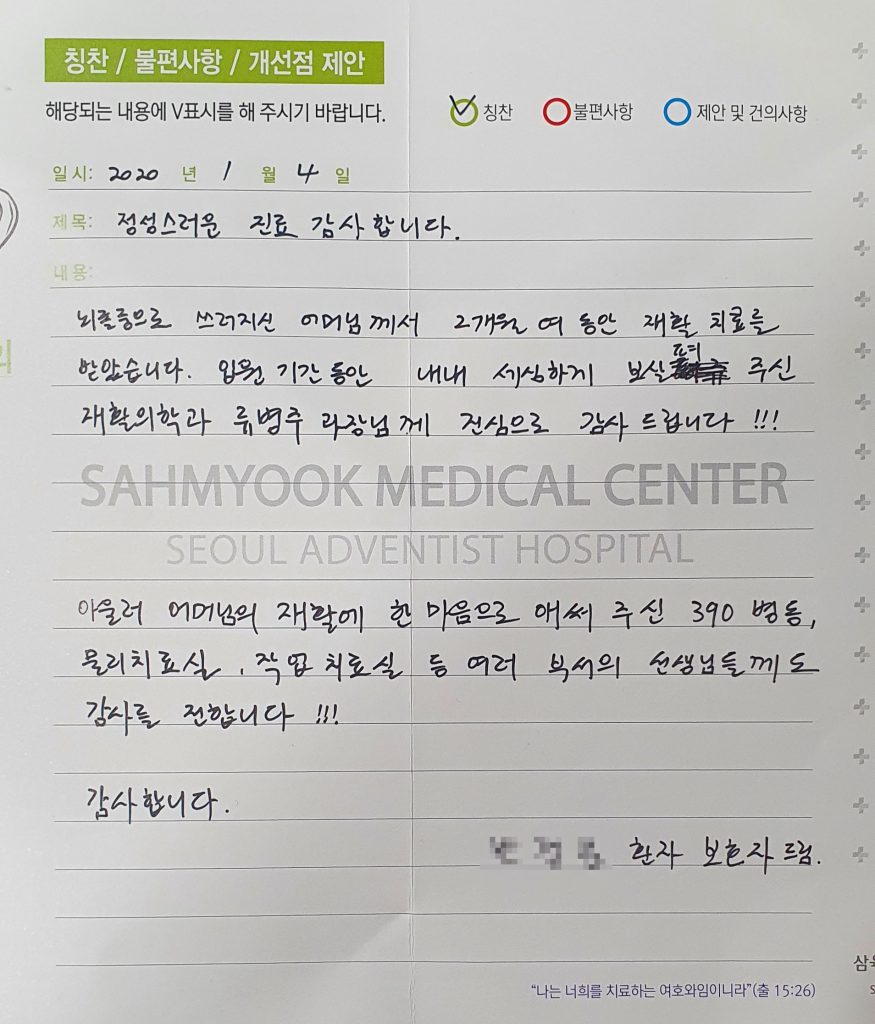 칭찬 / 불편사항 / 개선점 제안
해당되는 내용에 V표시를 해 주시기 바랍니다.
칭찬 불편사항 제안 및 건의사항
일시: 2020 년 1 월 4 일
제목: 정성스러운 진료 감사합니다.
내용:
뇌졸중으로 쓰러지신 어머님께서 2개월 여 동안 재활 치료를
받았습니다. 입원 기간 동안 내내 세심하게 보살펴 주신
재활의학과 류병주 과장님께 진심으로 감사 드립니다 !!!
SAHMYOOK MEDICAL CENTER
SEOUL ADVENTIST HOSPITAL
아울러 어머님의 재활에 한 마음으로 애써 주신 390 병동,
물리치료실, 작업치료실 등 여러 부서의 선생님들께도
감사를 전합니다 !!!
감사합니다.
환자 보호자 드림.
"나는 너희를 치료하는 여호와임이니라"(출 15:26)